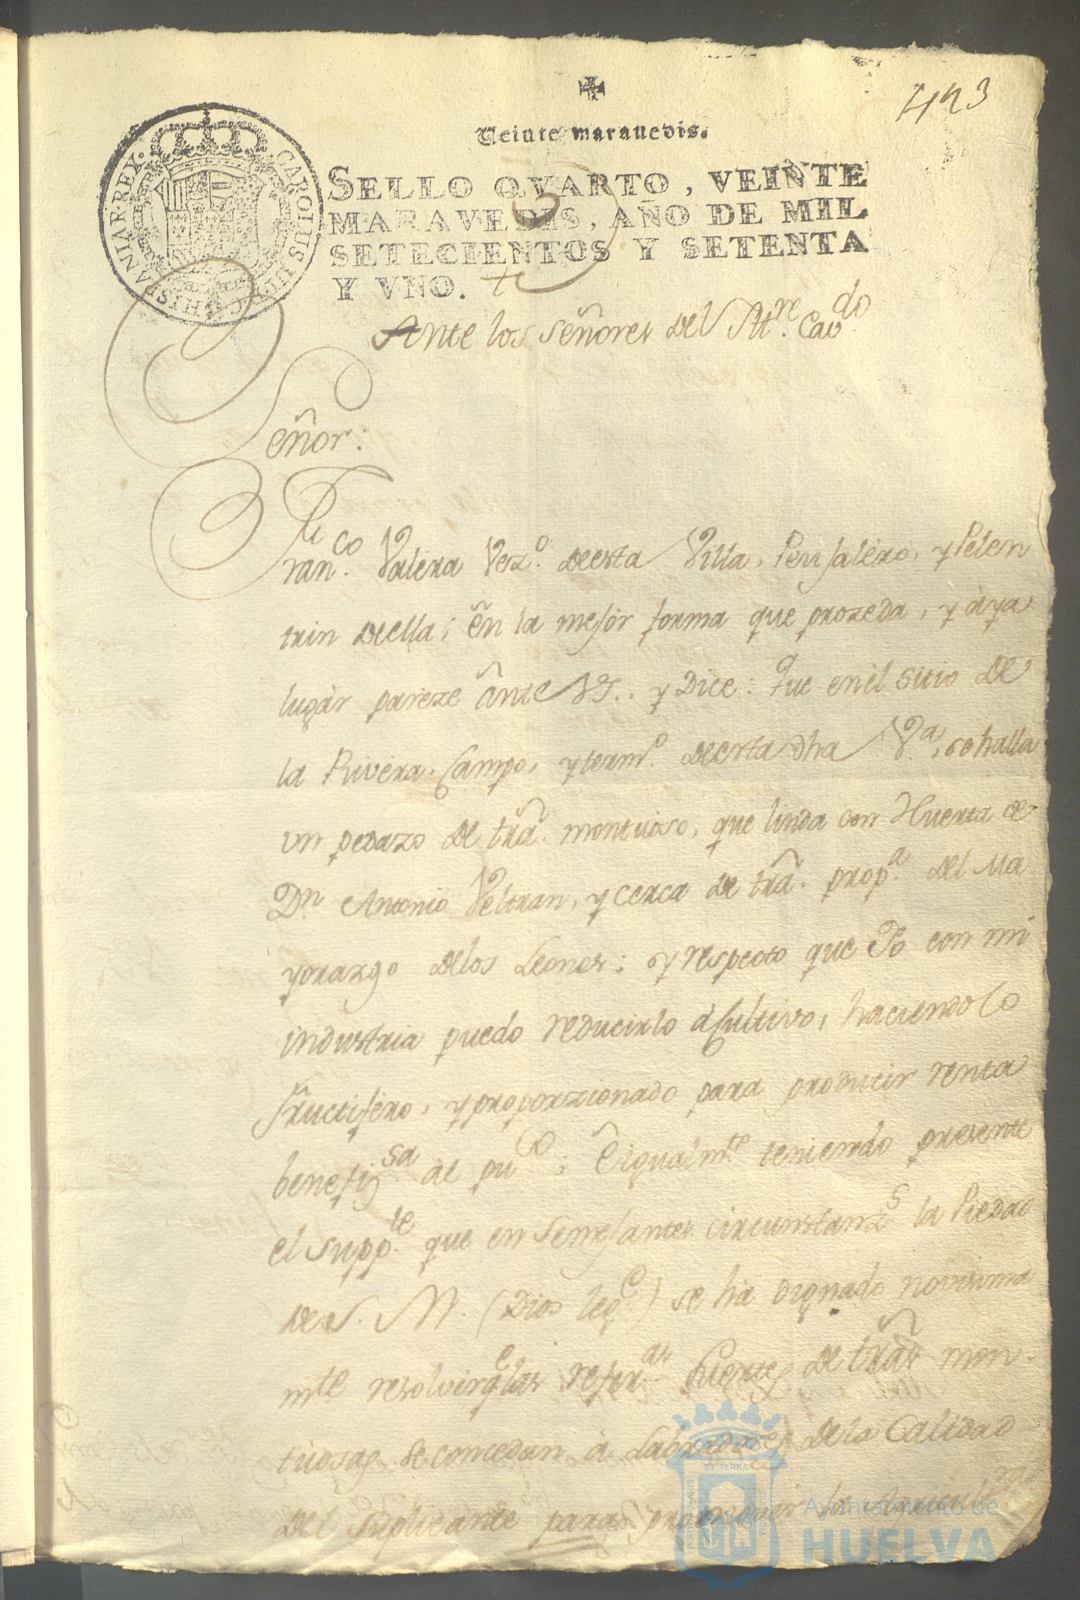 423
Veinte maravedis.
SELLO QVARTO, VEINTE
MARAVEDIS, AÑO DE MIL
SETECIENTOS Y SETENTA
Y VNO.
CAROLUS III D.G. HISPANIAR. REX.
Ante los Señores del Itt.re Cav.do
Señor:
Fran.co Valera Vez.o desta Villa, Pelen
trin della; en la mejór forma que prozeda, y àya
lugàr pareze ànte VS.. y Dice: que en èl sitio de
la Rivera, Campo, y term.o desta dha V.a, se halla
un pedazo de trã. montuoso, que linda con Huerta de
Dn Antonio Veltran, y cerca de trã. prop.a del Ma
yorazgo de los Leones; y respecto que Yo con mi
industria puedo reducirlo à Cultivo, haciendolo
fructifero, y proporzionado para producir renta
benefiz.sa àl pu.co; è igualm.te teniendo presente
el supp.te que en semejantes circunstanz.s la Piedad
de S. M. (Dios leg.e) se ha dignado novissima
m.te resolver q.e las refer.as suertes de trãs mon-
tuosas, se concedan à Labradores de la Calidad
del Suplicante para promover la
Ayuntamiento de
HUELVA